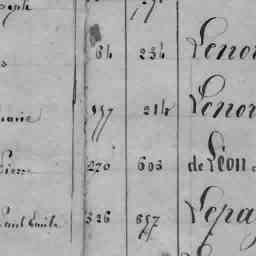 64 234 Lenor
marie 197 214 Lenor
Pierre 270 603 de Léon
Paul Emile 326 697 Lepa